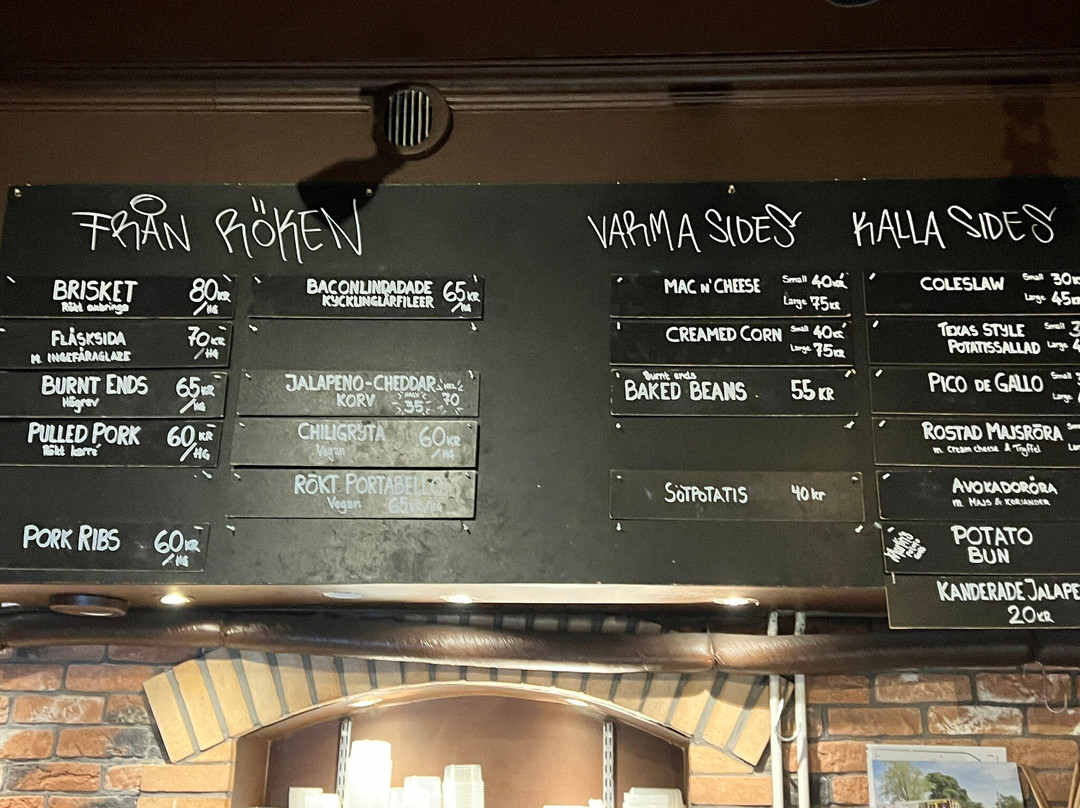 FRÅN RÖKEN
BRISKET 80 KR
Rökt oxbringa /HG
FLÄSKSIDA 70 KR
M. INGEFÄRAGLAZE /HG
BURNT ENDS 65 KR
Högrev /HG
PULLED PORK 60 KR
Rökt karré /HG
PORK RIBS 60 KR
/HG
BACONLINDADADE 65 KR
KYCKLINGLÅRFILEER /HG
JALAPENO-CHEDDAR HEL 70
KORV HALV 35
CHILIGRYTA 60 KR
Vegan
RÖKT PORTABELLO
Vegan 65 KR/HG
VARMA SIDES
MAC N' CHEESE Small 40 KR
Large 75 KR
CREAMED CORN Small 40 KR
Large 75 KR
Burnt ends
BAKED BEANS 55 KR
SÖTPOTATIS 40 kr
KALLA SIDES
COLESLAW Small 30 K
Large 45 K
TEXAS STYLE Small 3
POTATISSALLAD Large 4
PICO DE GALLO Small 3
Large
ROSTAD MAJSRÖRA
m. Cream cheese & Tryffel
AVOKADORÖRA
M. MAJS & KORIANDER
POTATO
BUN
KANDERADE JALAPE
20 KR